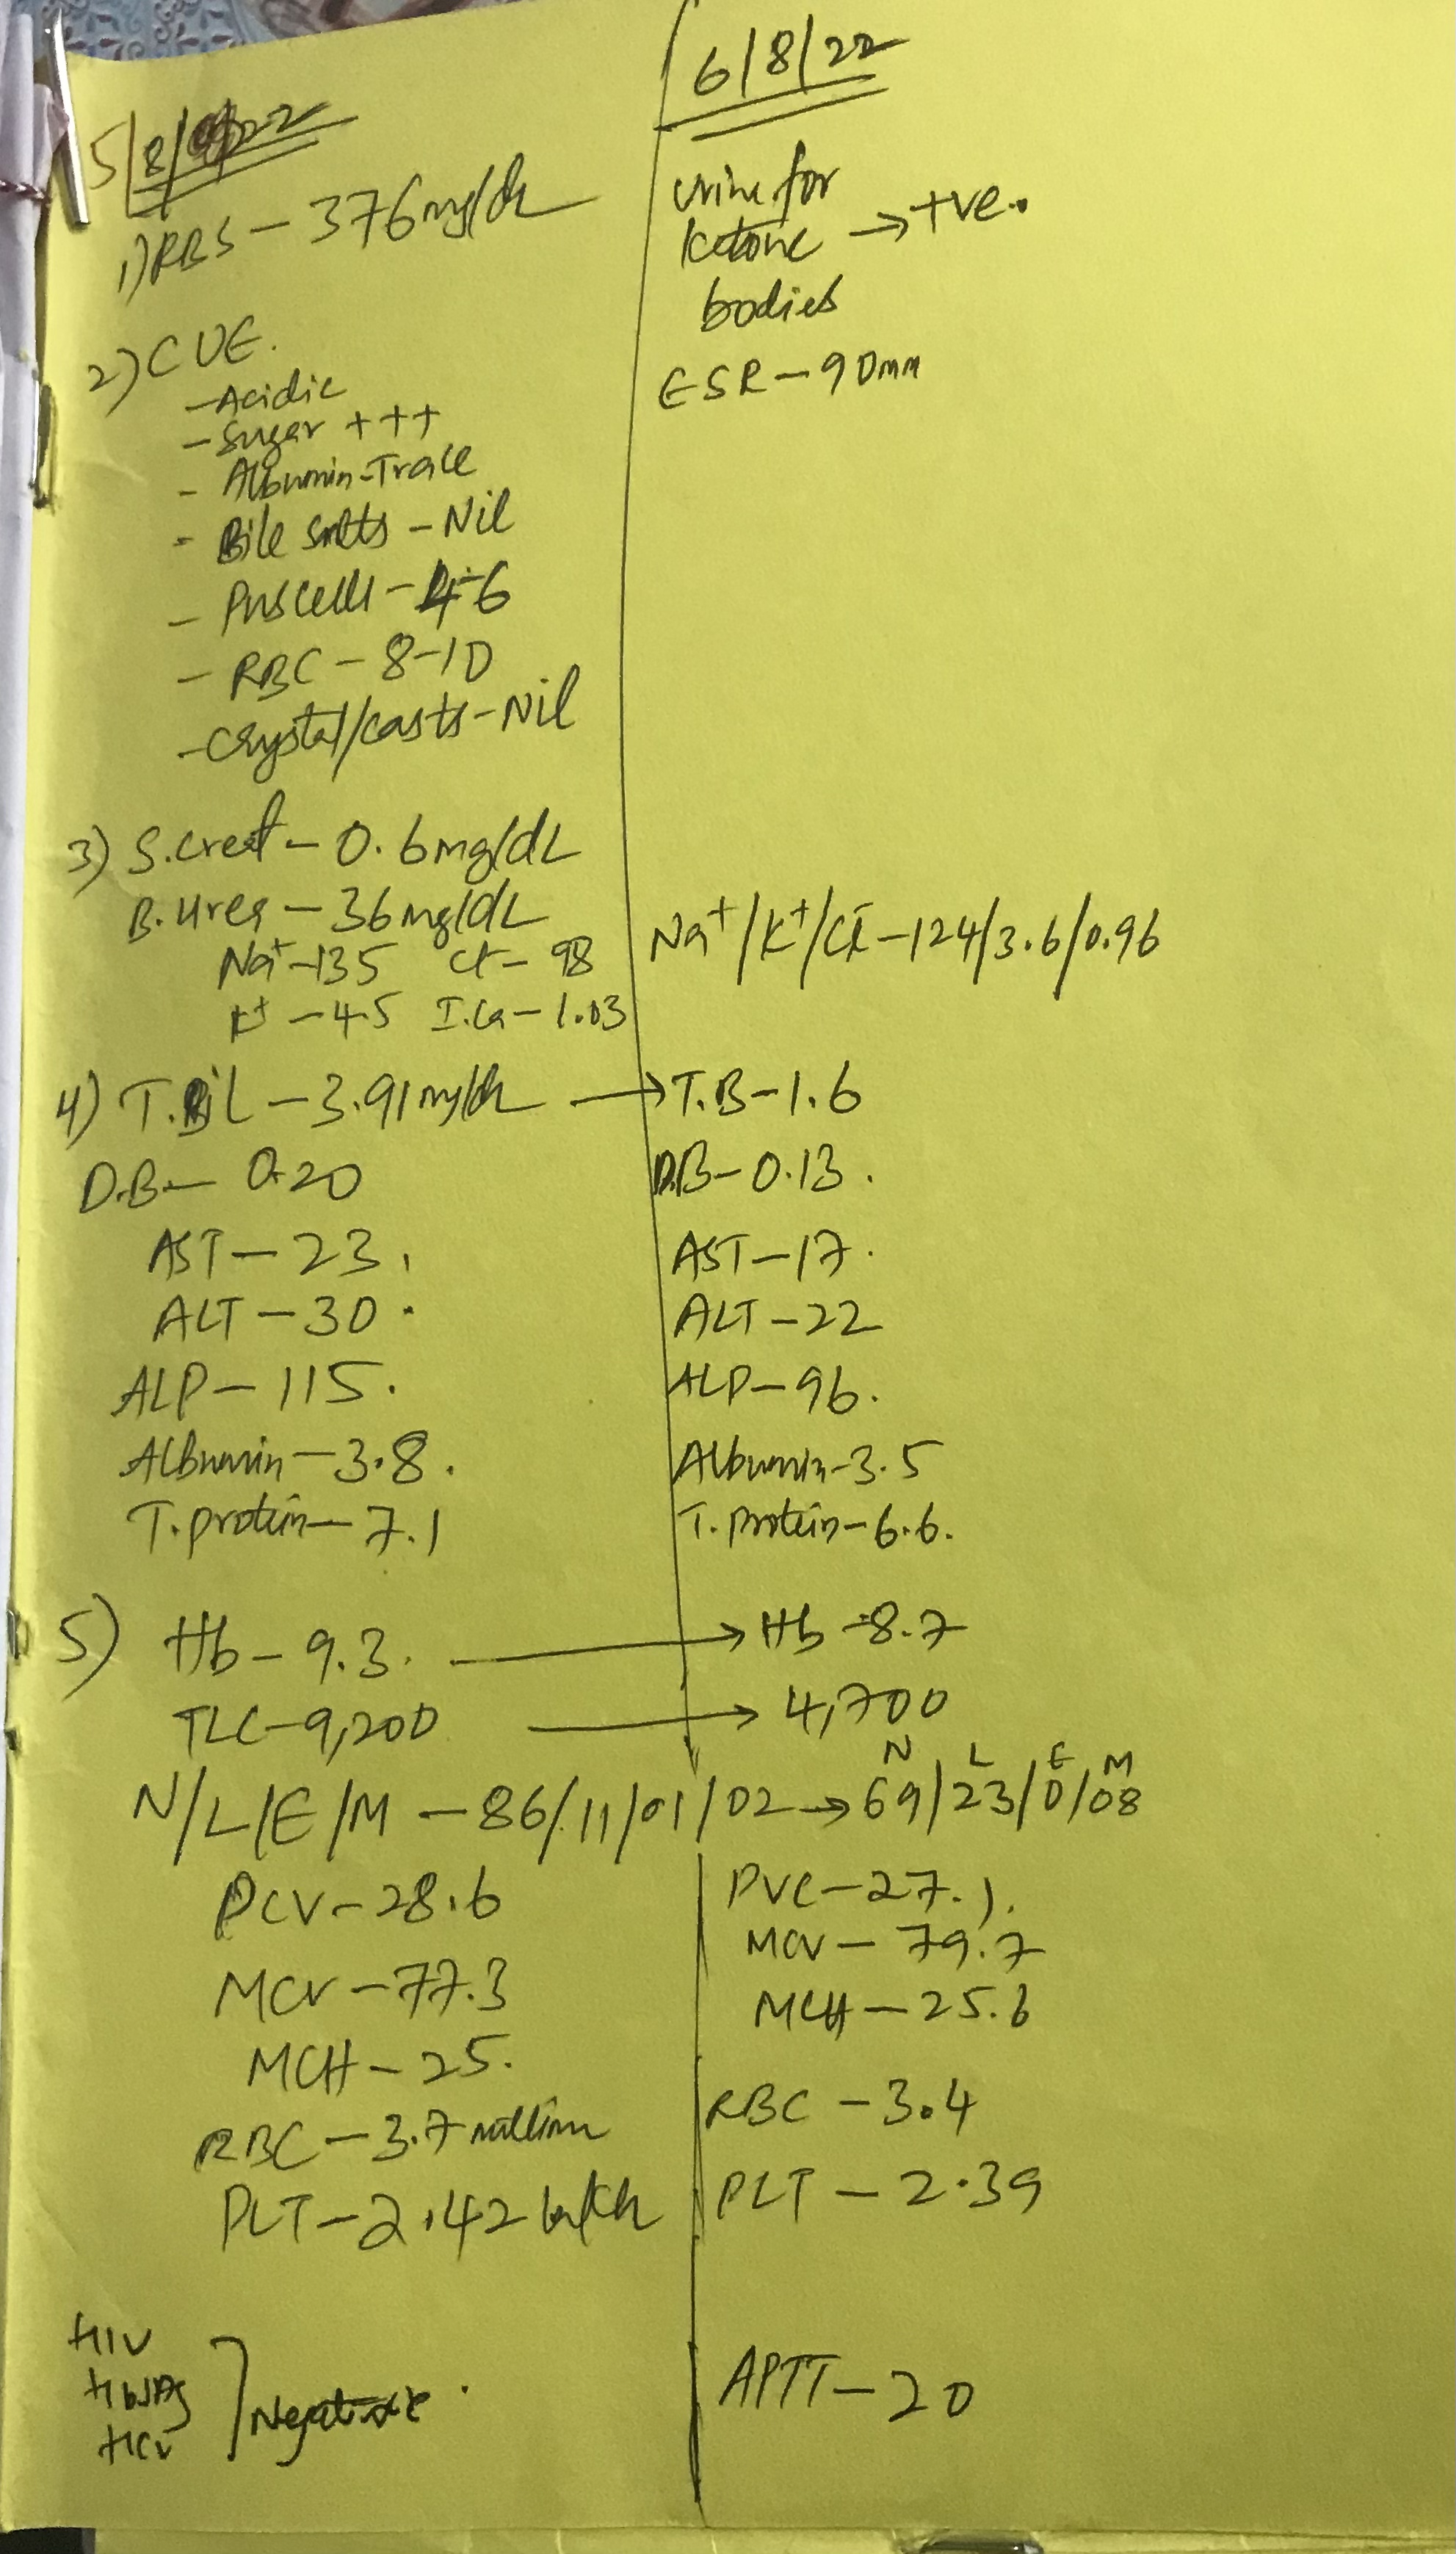 5/8/22
1) RBS - 376 mg/dL
2) CUE.
- Acidic
- Sugar +++
- Albumin-Trace
- Bile salts - Nil
- Puscells - 4-6
- RBC - 8-10
- Crystal/casts - Nil
3) S.creat - 0.6mg/dL
B.urea - 36mg/dL
Na+ - 135 Cl- - 98
K+ - 4.5 I.Ca - 1.03
4) T.Bil - 3.91mg/dL →
D.B - 0.20
AST - 23.
ALT - 30.
ALP - 115.
Albumin - 3.8.
T.protein - 7.1
5) Hb - 9.3. →
TLC - 9,200 →
N/L/E/M - 86/11/01/02 →
PCV - 28.6
MCV - 77.3
MCH - 25.
RBC - 3.7 million
PLT - 2.42 lakh
HIV
HbsAg
HCV
] Negative.
6/8/22
Urine for
ketone → +ve.
bodies
ESR - 90mm
Na+/K+/Cl- - 124/3.6/0.96
T.B - 1.6
D.B - 0.13.
AST - 17.
ALT - 22
ALP - 96.
Albumin - 3.5
T.protein - 6.6.
Hb - 8.7
4,700
N L E M
69/23/0/08
PVC - 27.1.
MCV - 79.7
MCH - 25.6
RBC - 3.4
PLT - 2.39
APTT - 20